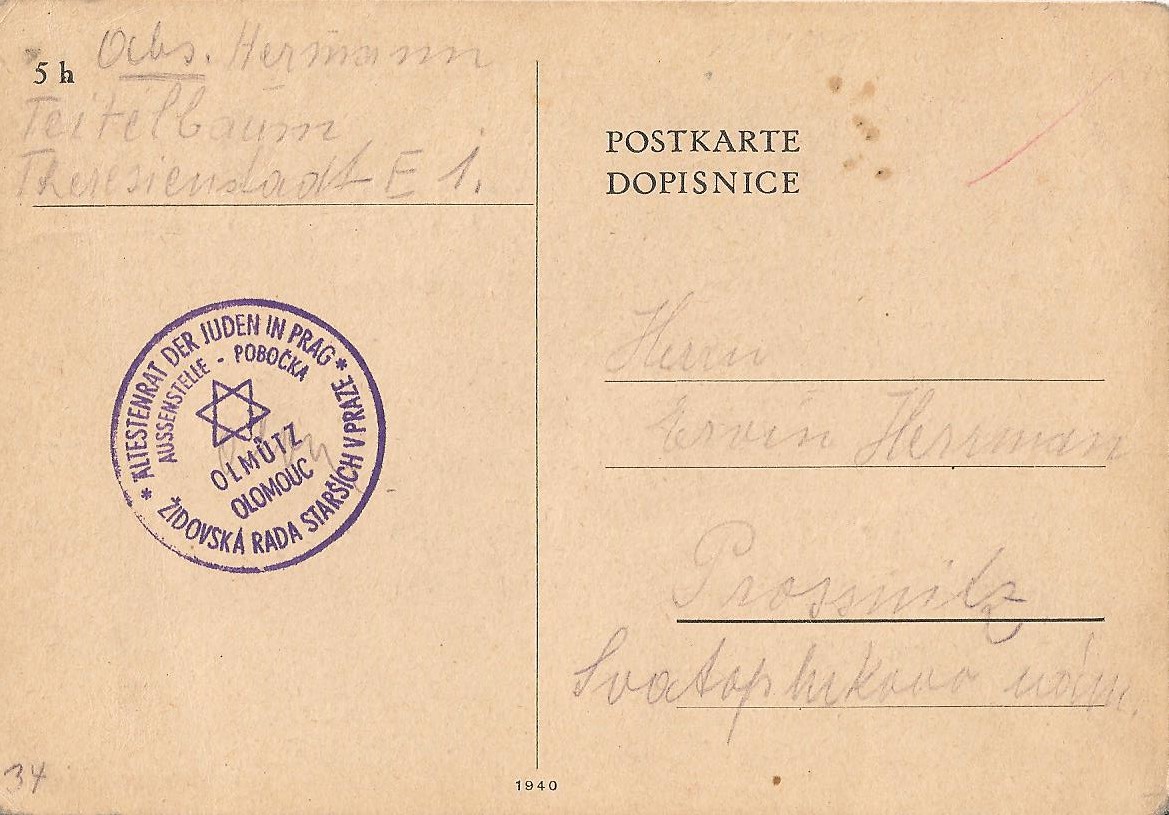 5 h
Abs. Hermann
Teitelbaum
Theresienstadt E 1.
POSTKARTE
DOPISNICE
* ÄLTESTENRAT DER JUDEN IN PRAG *
AUSSENSTELLE - POBOČKA
OLMÜTZ
OLOMOUC
ŽIDOVSKÁ RADA STARŠÍCH V PRAZE
Herrn
Ervin Herrman
Prossnitz
Svatoplukovo nám.
34
1940